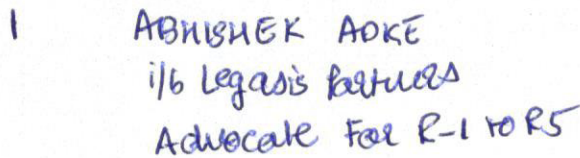 1 ABHISHEK ADKE
i/b Legasis Partners
Advocate For R-1 to R5